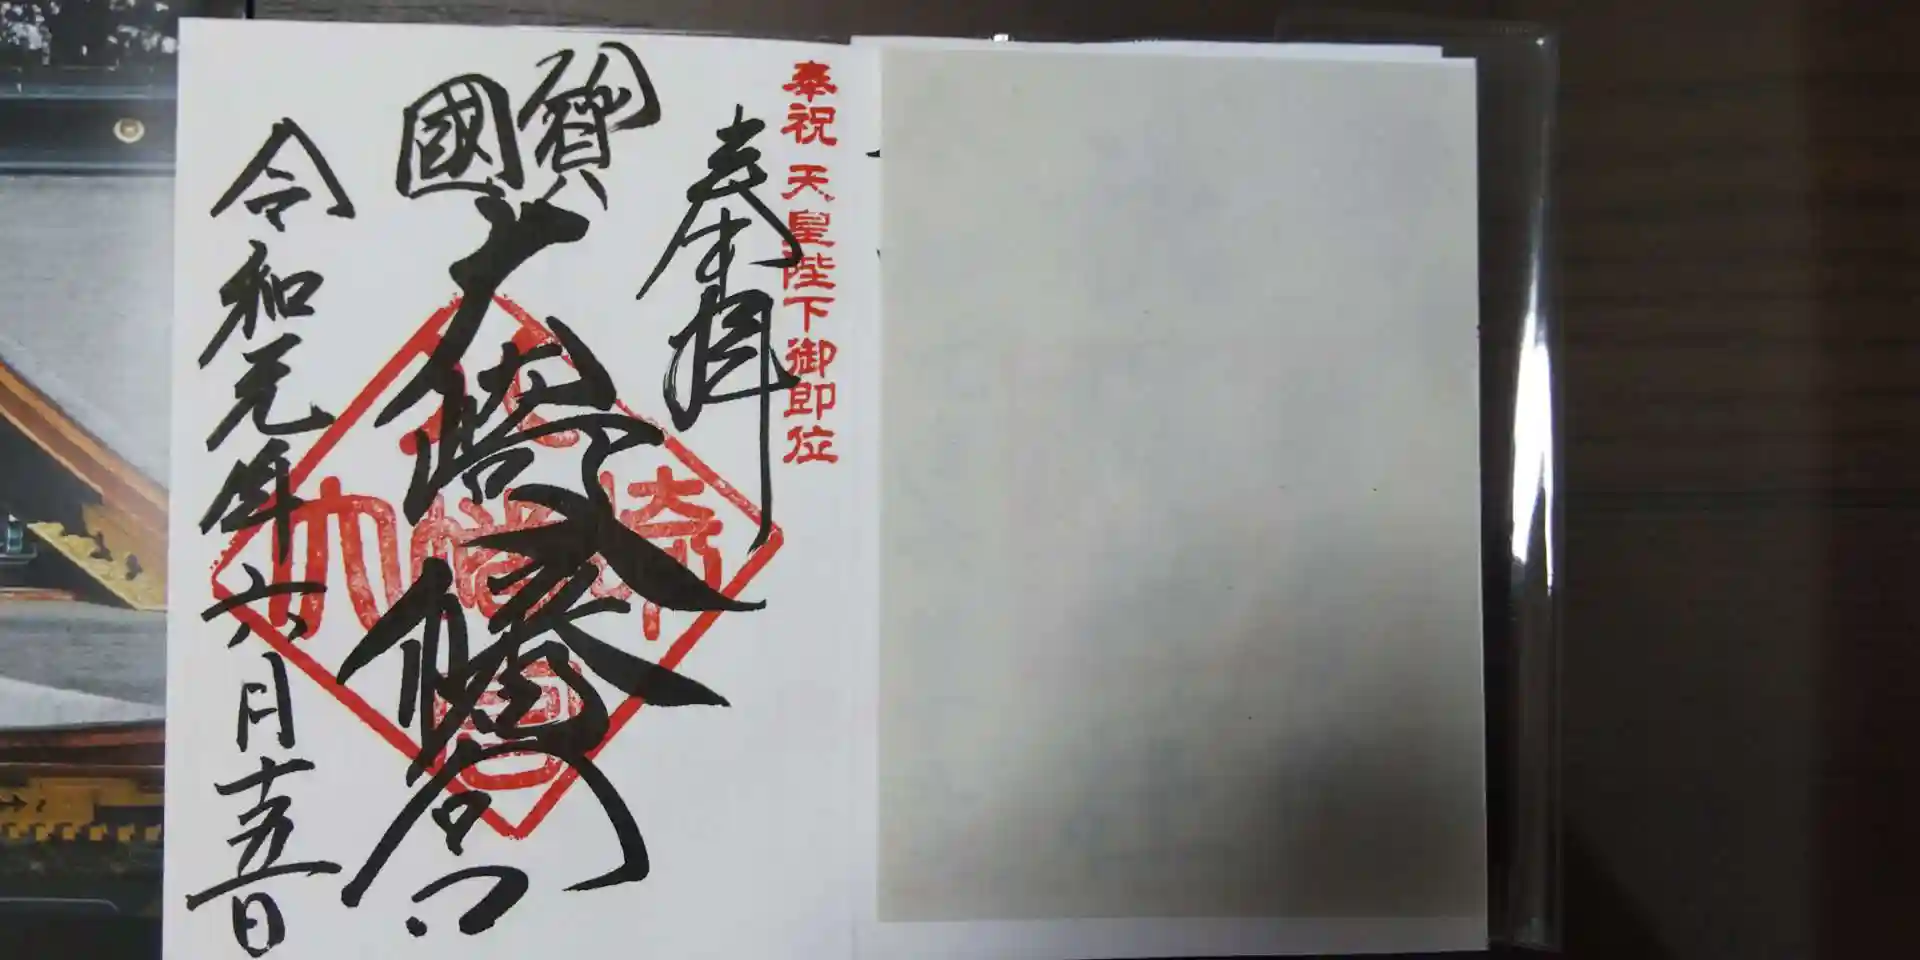 奉祝 天皇陛下御即位
奉拝
國寶
大崎八幡宮
令和元年六月十五日